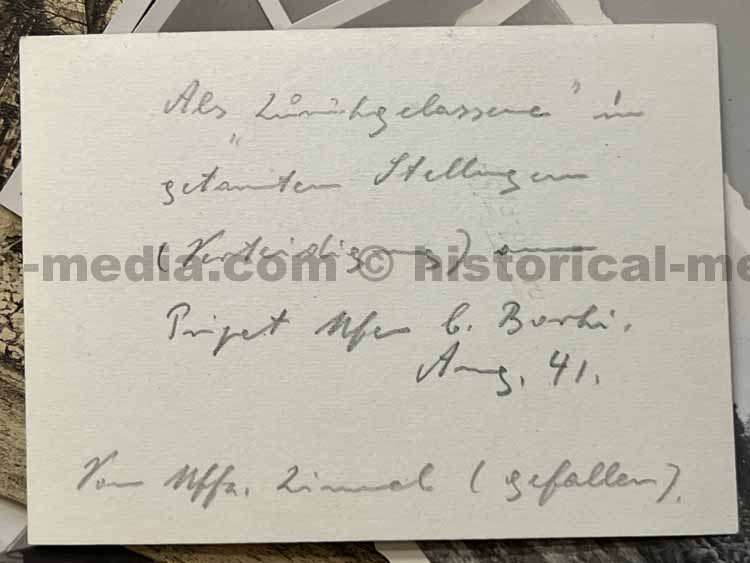 Als „Zurückgelassene“ in
getarnten Stellungen
(Verteidigung) am
-media.com © historical-me
Pripet Ufer b. Borki.
Aug. 41.
Von Uffz. (gefallen).